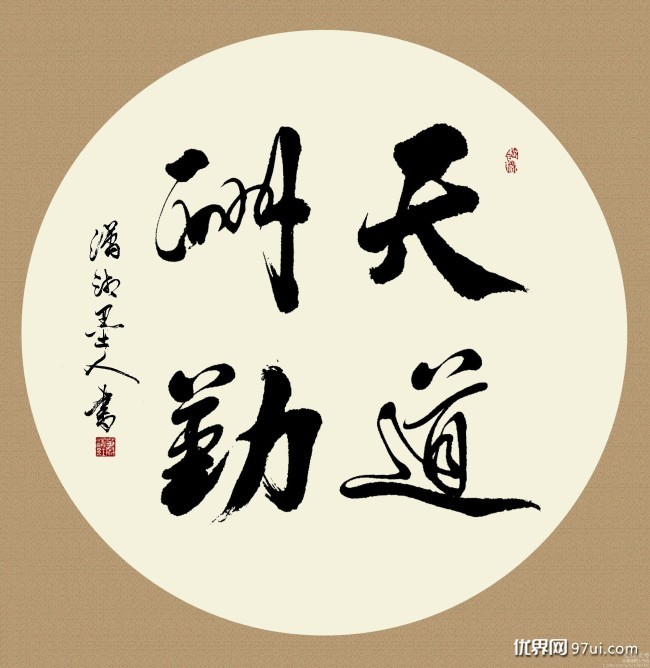 天道
酬勤
潇湘墨人书
优界网97ui.com